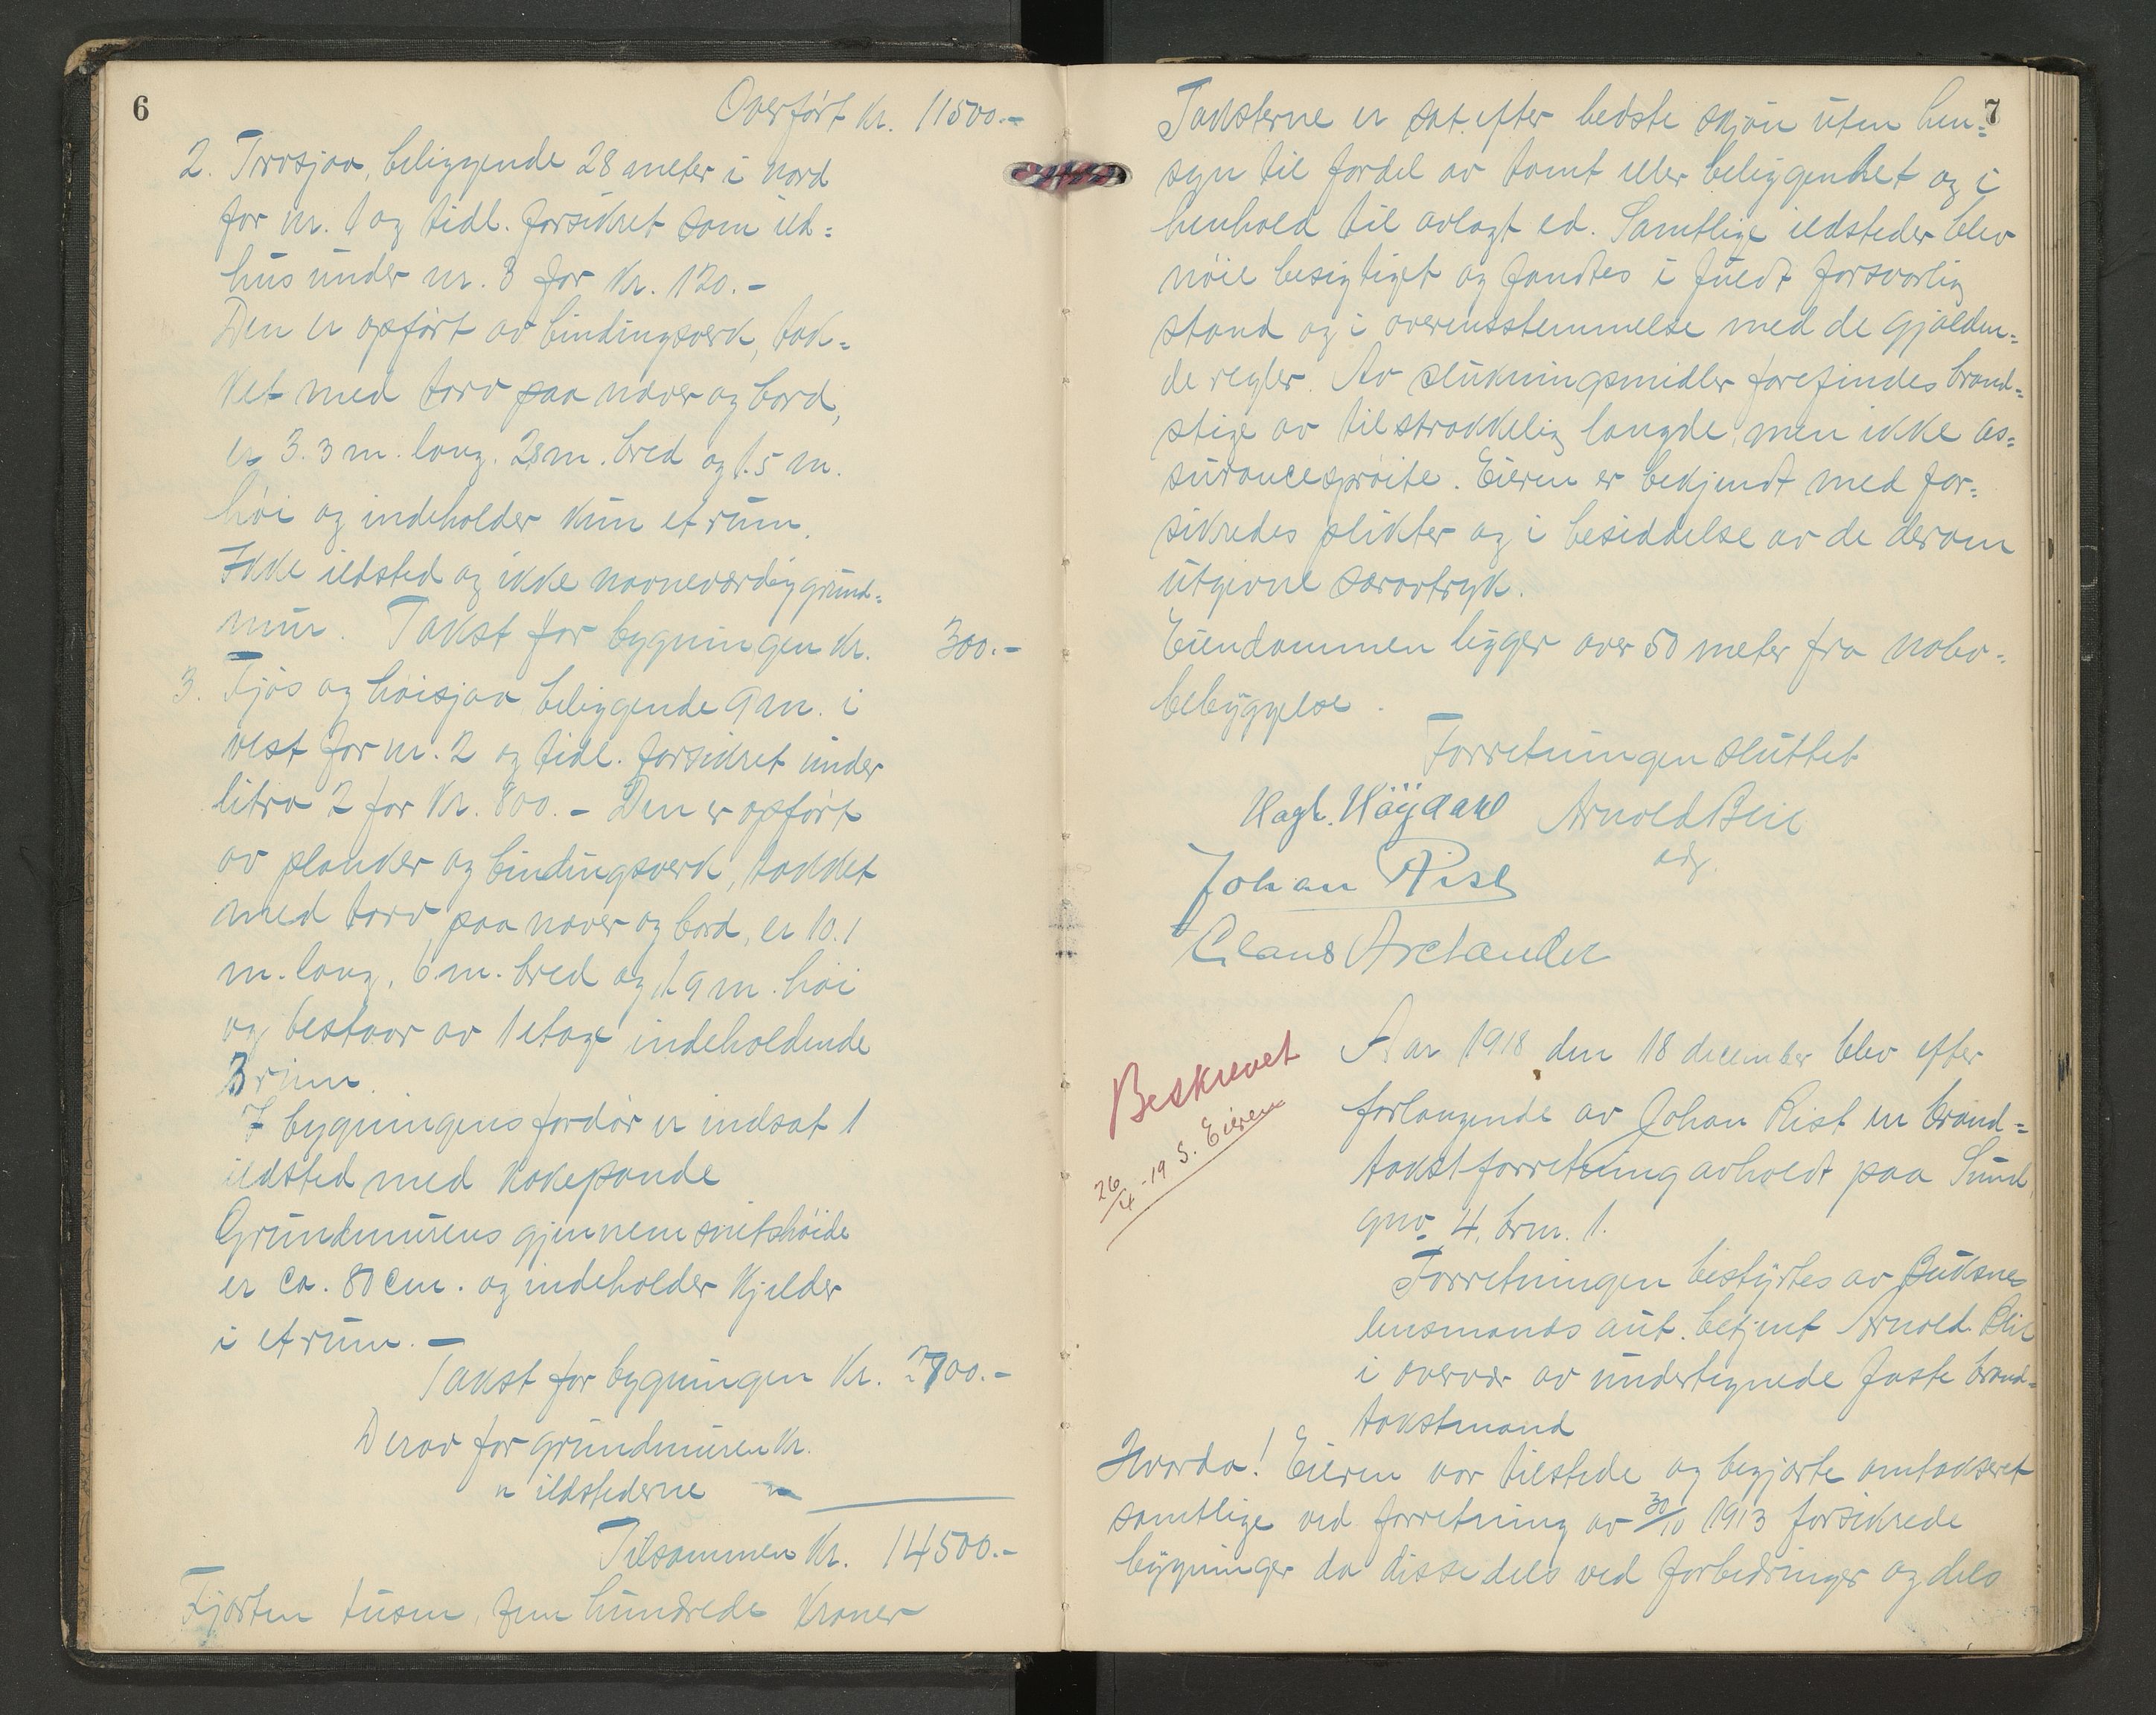 6
Overført Kr. 11500.-
2. Torvsjaa, beliggende 28 meter i nord
for nr. 1 og tidl. forsikret som ild=
hus under nr. 3 for Kr. 120.-
Den er opført av bindingsverk, tæk=
ket med torv paa næver og bord,
er 3.3 m. lang. 2,8 m. bred og 1.5 m.
høi og indeholder kun et rum.
Ikke ildsted og ikke navneværdig grund=
mur. Takst for bygningen Kr. 300.-
3. Fjøs og høisjaa beliggende 9 m. i
vest for nr. 2 og tidl. forsikret under
litra 2 for Kr. 800.- Den er opført
av planker og bindingsverk, tækket
med torv paa næver og bord, er 10.1
m. lang, 6 m. bred og 1.9 m. høi
og bestaar av 1 etage indeholdende
3 rum.
I bygningens fordør er indsat 1
ildsted med kokepande
Grundmurens gjennemsnitshøide
er ca. 80 cm. og indeholder kjelder
i et rum. -
Takst for bygningen Kr. 2700.-
Derav for grundmuren Kr.
" ildstederne "
Tilsammen Kr. 14500.-
Fjorten tusen, fem hundrede Kroner
7
Taksterne er sat efter bedste skjøn uten hen=
syn til fordel av tomt eller beliggenhet og i
henhold til avlagt ed. Samtlige ildsteder blev
nøie besigtiget og fandtes i fuldt forsvarlig
stand og i overensstemmelse med de gjælden=
de regler. Av slukningsmidler forefindes brand=
stige av tilstrækkelig længde, men ikke as=
surancesprøite. Eieren er bekjendt med for=
sikredes plikter og i besiddelse av de derom
utgivne særavtryk.
Eiendommen ligger over 50 meter fra nabo=
bebyggelse.
Forretningen sluttet
Hagb. Høydahl Arnold Blix
Johan Rist
Claus Archander
Beskrevet
26/4-19 S. Eieren
Aar 1918 den 18 december blev efter
forlangende av Johan Rist en brand=
takstforretning avholdt paa Sund,
gno. 4, brn. 1.
Forretningen bestyrtes av Buksnes
lensmands aut. betjent Arnold Blix
i overvær av undertegnede faste brand=
takstmænd
Hvorda! Eieren var tilstede og begjærte omtakseret
samtlige ved forretning av 30/10 1913 forsikrede
bygninger da disse dels ved forbedringer og dels